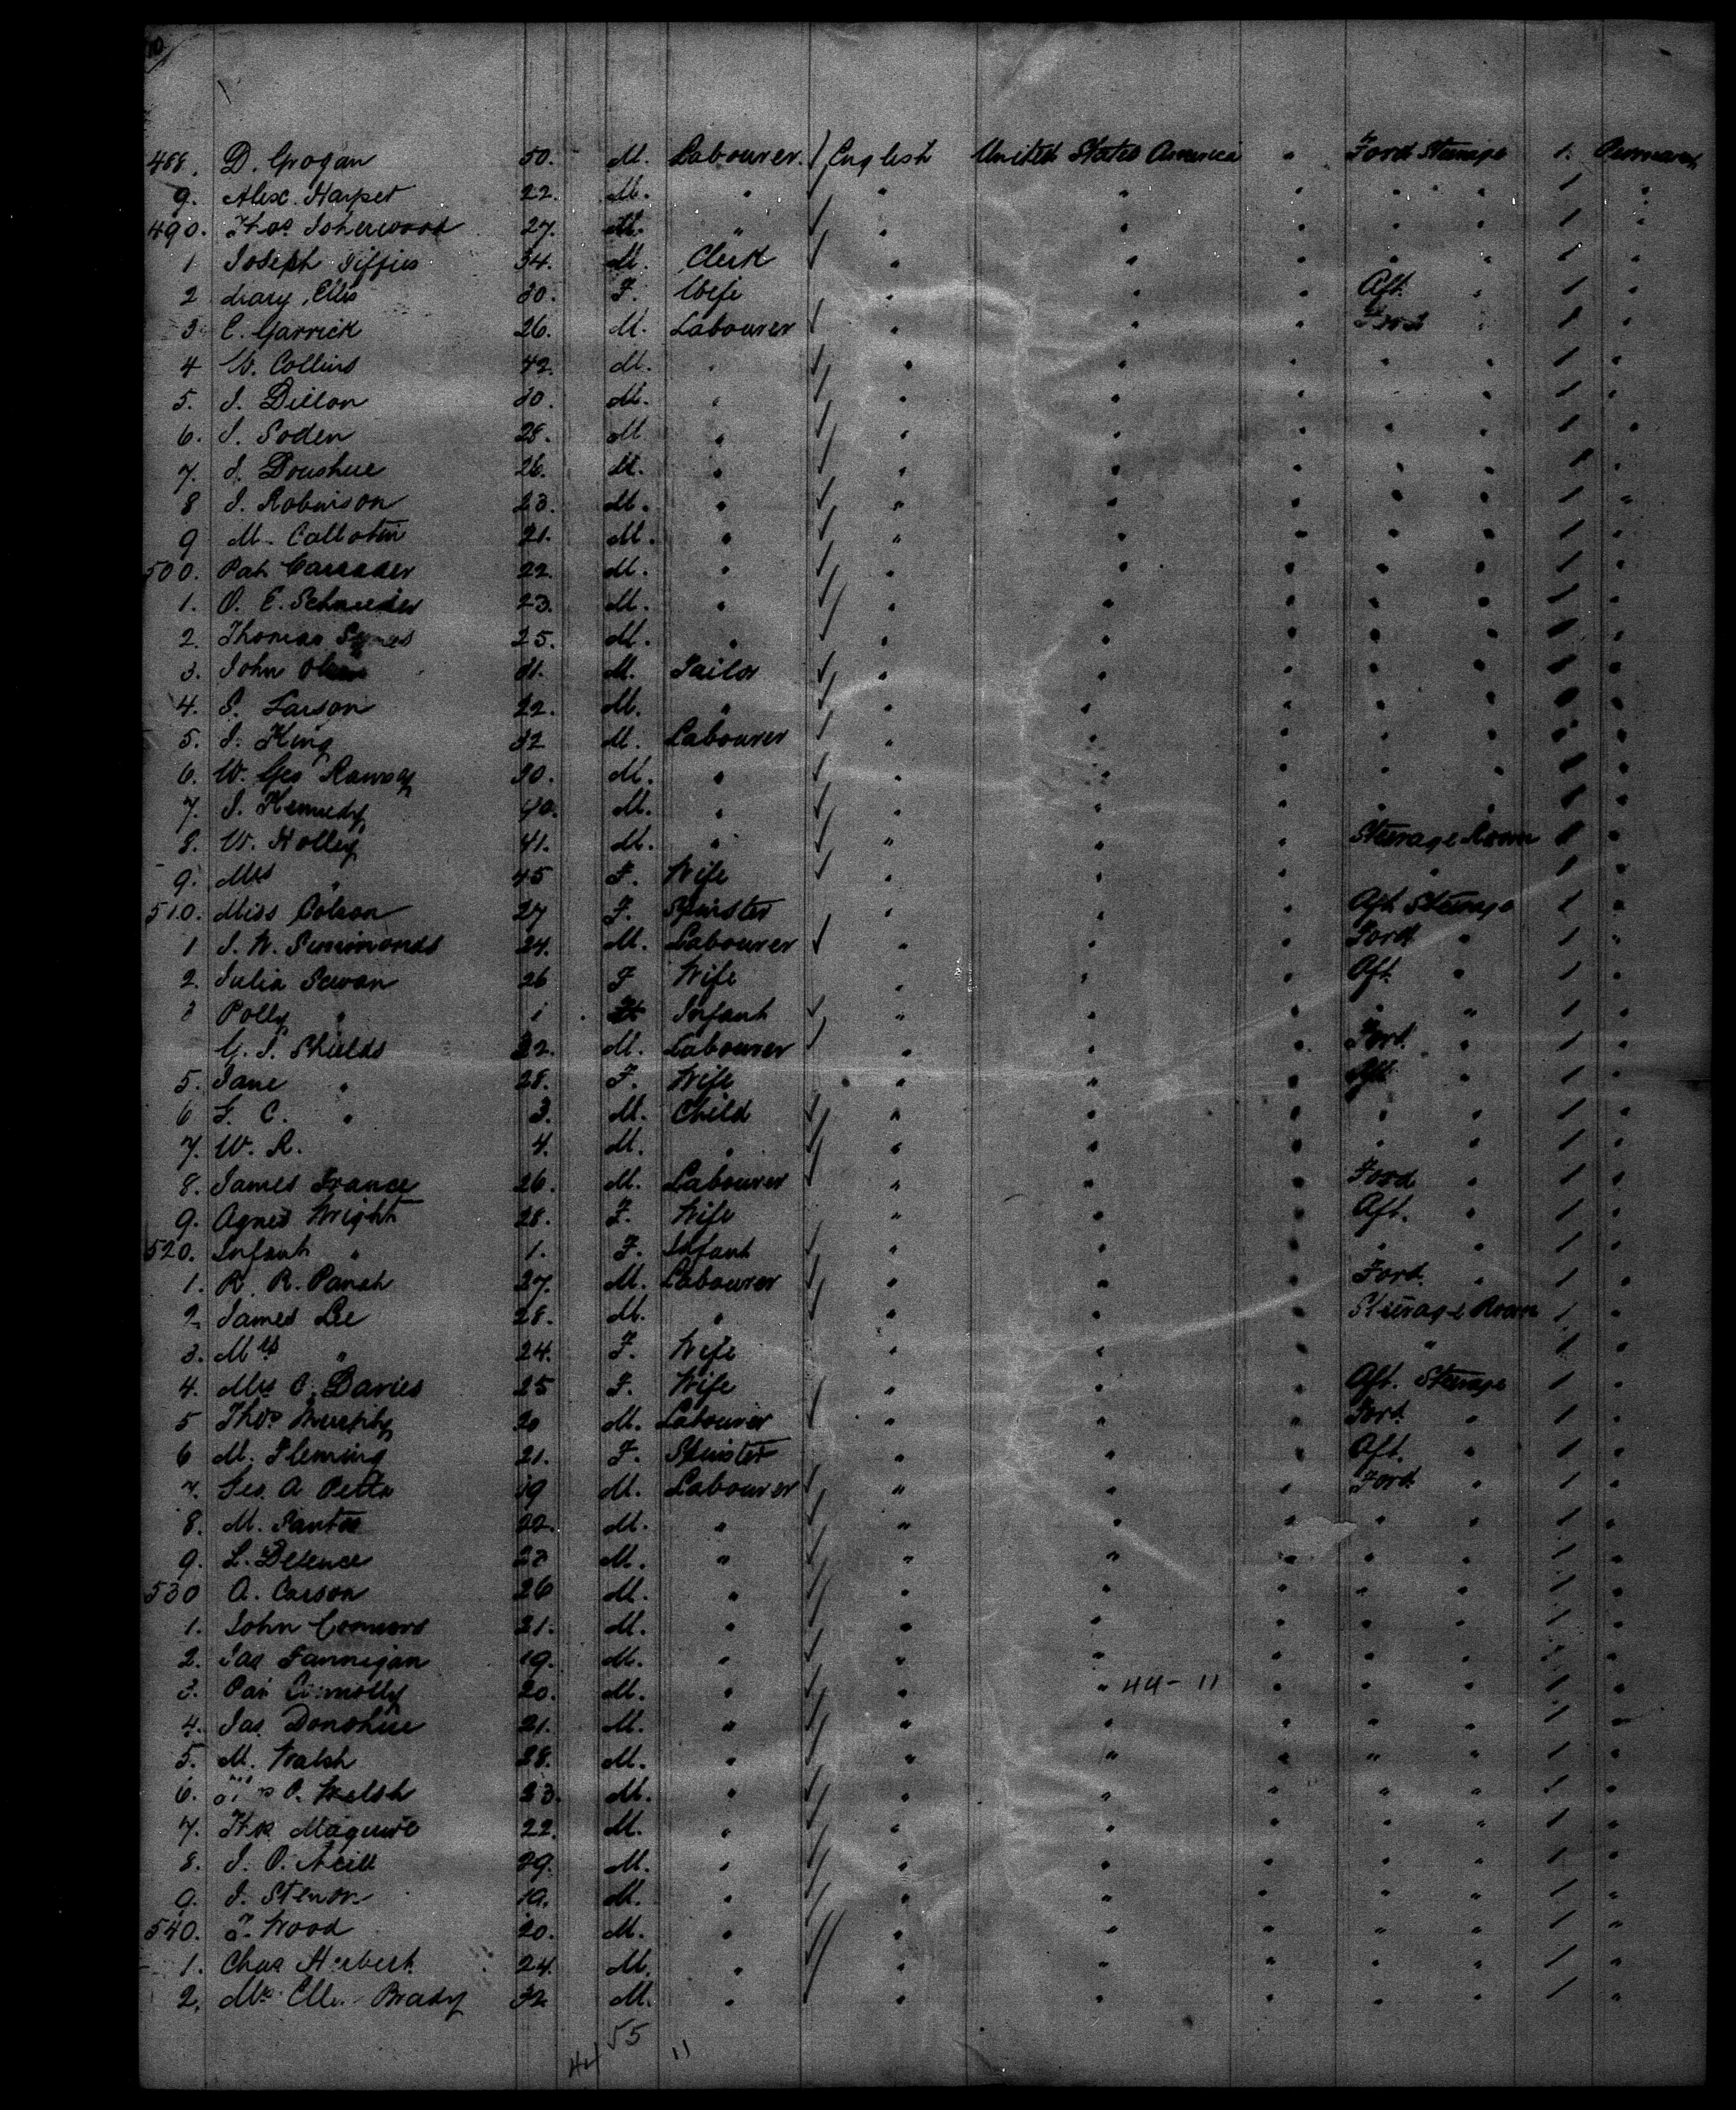 488. D. Grogan 50. M. Labourer. / English United States America " Ford Steerage 1. Permanent
9. Alex. Harper 22. M. " / " " " " " / "
490. Thos Isherwood 27. M. " / " " " " " / "
1 Joseph 34. M. Clerk / " " " " " / "
2 Mary Ellis 30. F. Wife " " " Aft. " / "
3 C. Garrick 26. M. Labourer / " " " Ford " / "
4 W. Collins 42. M. " / " " " " " / "
5. J. Dillon 30. M. " / " " " " " / "
6. J. Soden 28. M " / " " " " " / "
7. J. Donohue 26. M. " / " " " " " / "
8 J. Robinson 23. M. " / " " " " " / "
9 M. 21. M. " / " " " " " / "
500. Pat 22. M. " / " " " " " / "
1. O. E. Schneider 23. M. " / " " " " " / "
2. Thomas 25. M. " / " " " " " / "
3. John 31. M. Sailor / " " " " " / "
4. S. Larson 22. M. " / " " " " " / "
5. J. King 32 M. Labourer / " " " " " / "
6. W. Geo Ramsay 30. M. " / " " " " " / "
7. J. Kennedy 40. M. " / " " " " " / "
8. W. Holley 41. M. " / " " " Steerage Room / "
9. Mrs " 45 F. Wife / " " " " / "
510. Miss Colson 27 F. Spinster " " " Aft Steerage / "
1 J. W. Simmonds 24. M. Labourer / " " " Ford " / "
2. Julia Sewan 26 F Wife " " " Aft. " / "
3 Polly " 1 Infant / " " " " " / "
G. J. Shields 32. M. Labourer / " " " Ford. " / "
5. Jane " 28. F. Wife " " " Aft. " / "
6 F. C. " 3. M. Child / " " " " " / "
7. W. R. 4. M. " / " " " " " / "
8. James France 26. M. Labourer / " " " Ford " / "
9. Agnes Wright 28. F. Wife " " " Aft. " / "
520. Infant " 1. F. Infant / " " " " " / "
1. R. R. Parish 27. M. Labourer / " " " Ford. " / "
2 James Lee 28. M. " / " " " Steerage Room / "
3. Mrs " 24. F. Wife " " " " / "
4. Mrs C. Davies 25 F. Wife / " " " Aft. Steerage / "
5 Thos Murphy 20 M. Labourer / " " " Ford. " / "
6 M. Fleming 21. F. Spinster " " " Aft. " / "
7. Geo. A 19 M. Labourer / " " " Ford. " / "
8. M. 22. M. " / " " " " " / "
9. L. 23 M. " / " " " " " / "
530 A. Carson 26 M. " / " " " " " / "
1. John Connors 21. M. " / " " " " " / "
2. Jas Fannigan 19. M. " / " " " " " / "
3. Pat Connolly 20. M. " / " " 44-11 " " " / "
4. Jas. Donohue 21. M. " / " " " " " / "
5. M. Walsh 28. M. " / " " " " " / "
6. Welsh 23. M. " / " " " " " / "
7. Maguire 22. M. " / " " " " " / "
8. J. O. Neill 29. M. " / " " " " " / "
9. J. 19. M. " / " " " " " / "
540. J. Wood 20. M. " / " " " " " / "
1. Chas Herbert 24. M. " / " " " " " / "
2. Brady 32 M. " / " " " " " / "
55
44 11